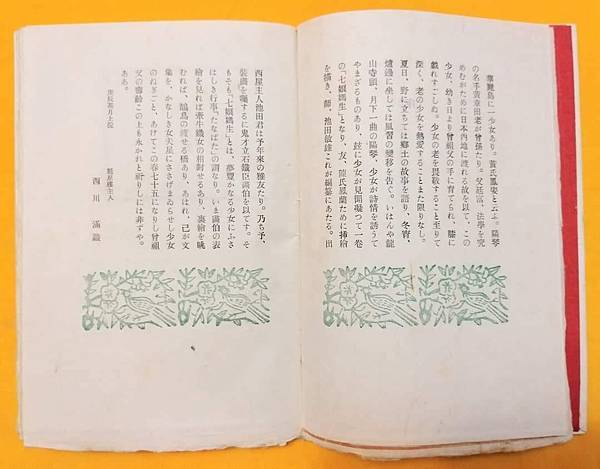 華麗島に一少女あり。黄氏鳳姿と云ふ。陽琴
の名手黄章田老が曾孫たり。父廷富、法學を究
めむがために日本內地に渡れる故を以て、この
少女、幼き日より曾祖父の手に育てられ、膝に
戲れすごしぬ。少女の老を畏敬すること至りて
深く、老の少女を熱愛することまた限りなし。
夏日、野に立ちては鄕土の故事を語り、冬宵、
爐邊に坐しては風習の變移を告ぐ。いはんや龍
山寺頭、月下一曲の陽琴、少女が詩情を誘うて
やまざるものあり、玆に少女が見聞凝つて一卷
の「七娘媽生」となり、友、陳氏鳳蘭ために揷繪
を描き、師、池田敏雄これが編纂にあたる。出
西屋主人池田君は予年來の雅友たり。乃ち予、
裝幀を囑するに鬼才立石鐵臣畵伯を以てす。そ
もそも「七娘媽生」とは、夢豐かなる少女にふさ
はしき行事、たなばたの謂なり。いま畵伯の表
繪を見れば牽牛織女の相對せるあり、裏繪を眺
むれば、鵲鳥の渡せる橋あり、あはれ、己が文
集を、かなしき少女夫星にささげまゐらせし少女
のねぎごと、あけてこの春七十五になりし曾祖
父の壽齡このうへも永かれと祈りしには非ずや。
ああ。
庚辰新月上浣
西川滿識